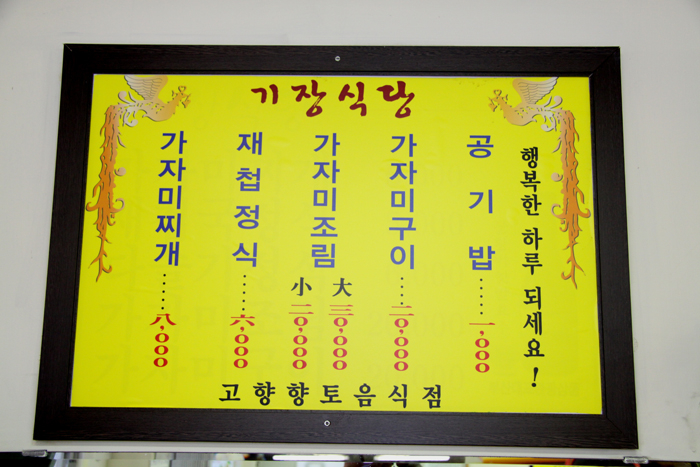 기장식당
행복한 하루 되세요!
공기밥 ...... 一,000
가자미구이 ..... 二0,000
가자미조림
大 三0,000
小 二0,000
재첩정식 ...... 六,000
가자미찌개 ...... 八,000
고향향토음식점